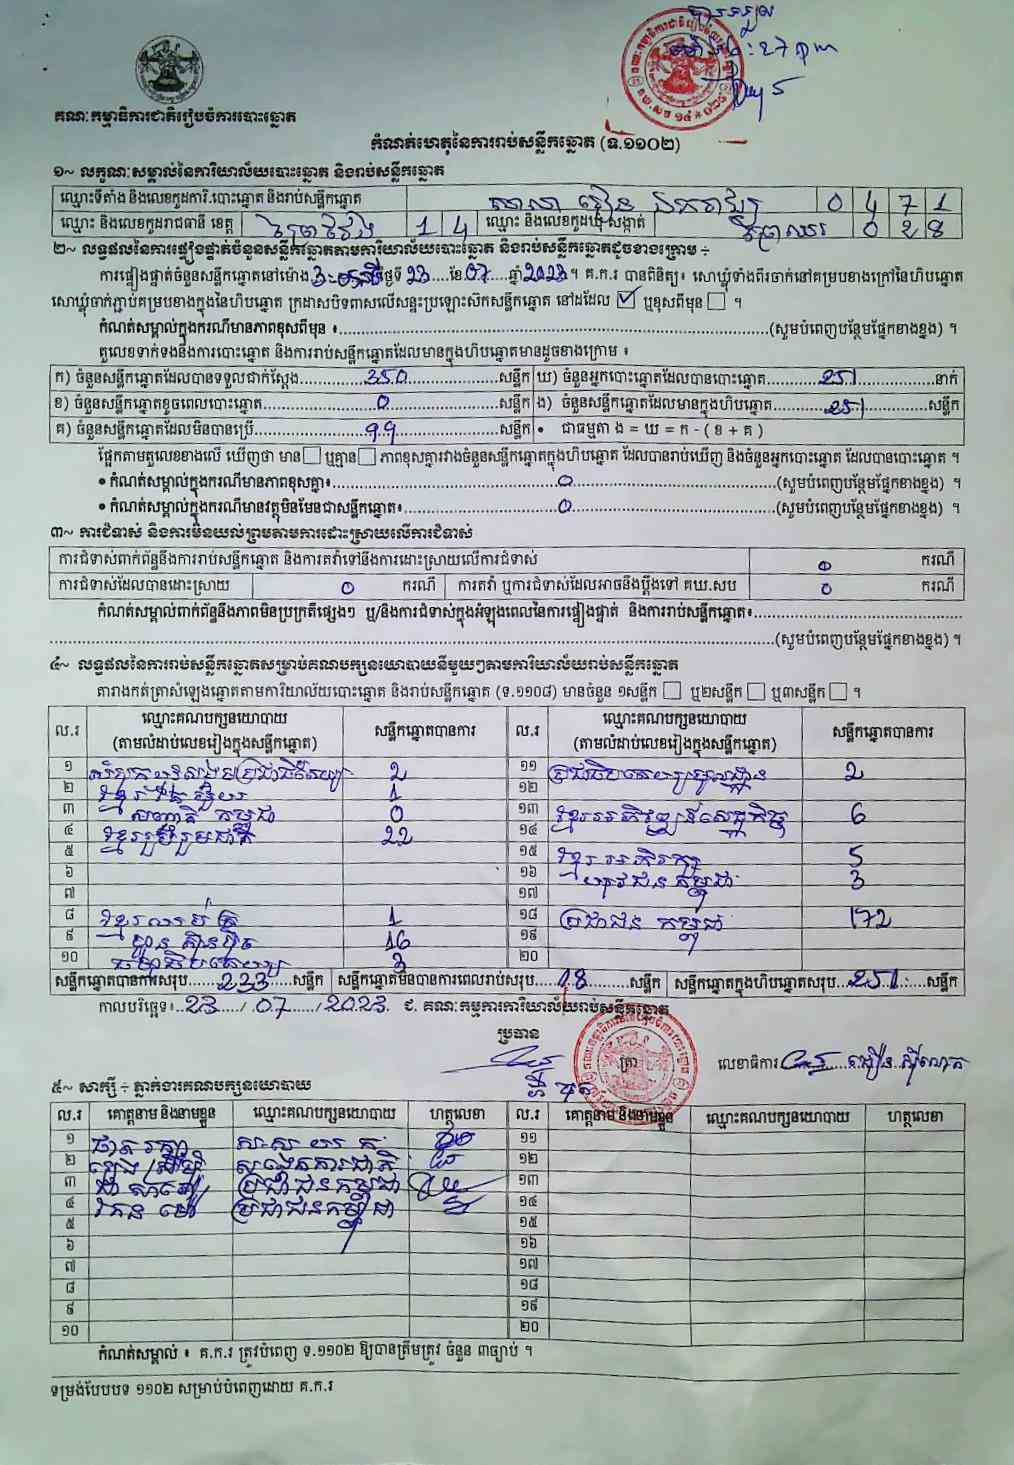 គណៈកម្មាធិការជាតិរៀបចំការបោះឆ្នោត
កំណត់ហេតុនៃការរាប់សន្លឹកឆ្នោត (ទ.១១០២)
១~ លក្ខណៈសម្គាល់នៃការិយាល័យបោះឆ្នោត និងរាប់សន្លឹកឆ្នោត
ឈ្មោះទីតាំង និងលេខកូដការិ.បោះឆ្នោត និងរាប់សន្លឹកឆ្នោត សាលា រៀន 0 4 7 1
ឈ្មោះ និងលេខកូដរាជធានី ខេត្ត ព្រៃវែង 1 4 ឈ្មោះ និងលេខកូដឃុំ-សង្កាត់ 0 2 8
២~ លទ្ធផលនៃការផ្ទៀងផ្ទាត់ចំនួនសន្លឹកឆ្នោតតាមការិយាល័យបោះឆ្នោត និងរាប់សន្លឹកឆ្នោតដូចខាងក្រោម ÷
ការផ្ទៀងផ្ទាត់ចំនួនសន្លឹកឆ្នោតនៅម៉ោង 3 ថ្ងៃទី 23 ខែ 07 ឆ្នាំ 2023 ។ គ.ក.រ បានពិនិត្យ៖ សោឃ្លុំទាំងពីរចាក់នៅគម្របខាងក្រៅនៃហិបឆ្នោត
សោឃ្លុំចាក់ភ្ជាប់គម្របខាងក្នុងនៃហិបឆ្នោត ក្រដាសបិទពាសលើសន្ទះប្រឡោះសិកសន្លឹកឆ្នោត នៅដដែល ☑ ឬខុសពីមុន ☐ ។
កំណត់សម្គាល់ក្នុងករណីមានភាពខុសពីមុន ៖ (សូមបំពេញបន្ថែមផ្នែកខាងខ្នង) ។
តួលេខទាក់ទងនឹងការបោះឆ្នោត និងការរាប់សន្លឹកឆ្នោតដែលមានក្នុងហិបឆ្នោតមានដូចខាងក្រោម ៖
ក) ចំនួនសន្លឹកឆ្នោតដែលបានទទួលជាក់ស្តែង 350 សន្លឹក ឃ) ចំនួនអ្នកបោះឆ្នោតដែលបានបោះឆ្នោត 251 នាក់
ខ) ចំនួនសន្លឹកឆ្នោតខូចពេលបោះឆ្នោត 0 សន្លឹក ង) ចំនួនសន្លឹកឆ្នោតដែលមានក្នុងហិបឆ្នោត 251 សន្លឹក
គ) ចំនួនសន្លឹកឆ្នោតដែលមិនបានប្រើ 99 សន្លឹក • ជាធម្មតា ង = ឃ = ក - ( ខ + គ )
ផ្អែកតាមតួលេខខាងលើ ឃើញថា មាន ☐ ឬគ្មាន ☐ ភាពខុសគ្នារវាងចំនួនសន្លឹកឆ្នោតក្នុងហិបឆ្នោត ដែលបានរាប់ឃើញ និងចំនួនអ្នកបោះឆ្នោត ដែលបានបោះឆ្នោត ។
• កំណត់សម្គាល់ក្នុងករណីមានភាពខុសគ្នា៖ 0 (សូមបំពេញបន្ថែមផ្នែកខាងខ្នង) ។
• កំណត់សម្គាល់ក្នុងករណីមានវត្ថុមិនមែនជាសន្លឹកឆ្នោត៖ 0 (សូមបំពេញបន្ថែមផ្នែកខាងខ្នង) ។
៣~ ការជំទាស់ និងការមិនយល់ព្រមតាមការដោះស្រាយលើការជំទាស់
ការជំទាស់ពាក់ព័ន្ធនឹងការរាប់សន្លឹកឆ្នោត និងការតវ៉ាទៅនឹងការដោះស្រាយលើការជំទាស់ 0 ករណី
ការជំទាស់ដែលបានដោះស្រាយ 0 ករណី ការតវ៉ា ឬការជំទាស់ដែលអាចនឹងប្តឹងទៅ គឃ.សប 0 ករណី
កំណត់សម្គាល់ពាក់ព័ន្ធនឹងភាពមិនប្រក្រតីផ្សេងៗ ឬ/និងការជំទាស់ក្នុងអំឡុងពេលនៃការផ្ទៀងផ្ទាត់ និងការរាប់សន្លឹកឆ្នោត៖
(សូមបំពេញបន្ថែមផ្នែកខាងខ្នង) ។
៤~ លទ្ធផលនៃការរាប់សន្លឹកឆ្នោតសម្រាប់គណបក្សនយោបាយនីមួយៗតាមការិយាល័យរាប់សន្លឹកឆ្នោត
តារាងកត់ត្រាសំឡេងឆ្នោតតាមការិយាល័យបោះឆ្នោត និងរាប់សន្លឹកឆ្នោត (ទ.១១០៨) មានចំនួន ១សន្លឹក ☐ ឬ២សន្លឹក ☐ ឬ៣សន្លឹក ☐ ។
ល.រ ឈ្មោះគណបក្សនយោបាយ (តាមលំដាប់លេខរៀងក្នុងសន្លឹកឆ្នោត) សន្លឹកឆ្នោតបានការ ល.រ ឈ្មោះគណបក្សនយោបាយ (តាមលំដាប់លេខរៀងក្នុងសន្លឹកឆ្នោត) សន្លឹកឆ្នោតបានការ
១ 2 ១១ ប្រជាធិបតេយ្យមូលដ្ឋាន 2
២ ខ្មែរ 1 ១២
៣ សញ្ជាតិ កម្ពុជា 0 ១៣ ខ្មែរអភិវឌ្ឍន៍សេដ្ឋកិច្ច 6
៤ ខ្មែររួបរួមជាតិ 22 ១៤
៥ ១៥ ខ្មែរអភិរក្ស 5
៦ ១៦ យុវជន កម្ពុជា 3
៧ ១៧
៨ ខ្មែរឈប់ក្រ 1 ១៨ ប្រជាជន កម្ពុជា 172
៩ ហ៊្វុនស៊ិនប៉ិច 16 ១៩
១០ 3 ២០
សន្លឹកឆ្នោតបានការសរុប 233 សន្លឹក សន្លឹកឆ្នោតមិនបានការពេលរាប់សរុប 18 សន្លឹក សន្លឹកឆ្នោតក្នុងហិបឆ្នោតសរុប 251 សន្លឹក
កាលបរិច្ឆេទ៖ 23 / 07 / 2023 ជ. គណៈកម្មការការិយាល័យរាប់សន្លឹកឆ្នោត
ប្រធាន ត្រា លេខាធិការ
៥~ សាក្សី ÷ ភ្នាក់ងារគណបក្សនយោបាយ
ល.រ គោត្តនាម និងនាមខ្លួន ឈ្មោះគណបក្សនយោបាយ ហត្ថលេខា ល.រ គោត្តនាម និងនាមខ្លួន ឈ្មោះគណបក្សនយោបាយ ហត្ថលេខា
១ ផាត រក្សា ស.ស យ.ក ១១
២ ១២
៣ ជា ប្រជាជនកម្ពុជា ១៣
៤ ប្រជាជនកម្ពុជា ១៤
៥ ១៥
៦ ១៦
៧ ១៧
៨ ១៨
៩ ១៩
១០ ២០
កំណត់សម្គាល់ ៖ គ.ក.រ ត្រូវបំពេញ ទ.១១០២ ឱ្យបានត្រឹមត្រូវ ចំនួន ៣ច្បាប់ ។
ទម្រង់បែបបទ ១១០២ សម្រាប់បំពេញដោយ គ.ក.រ